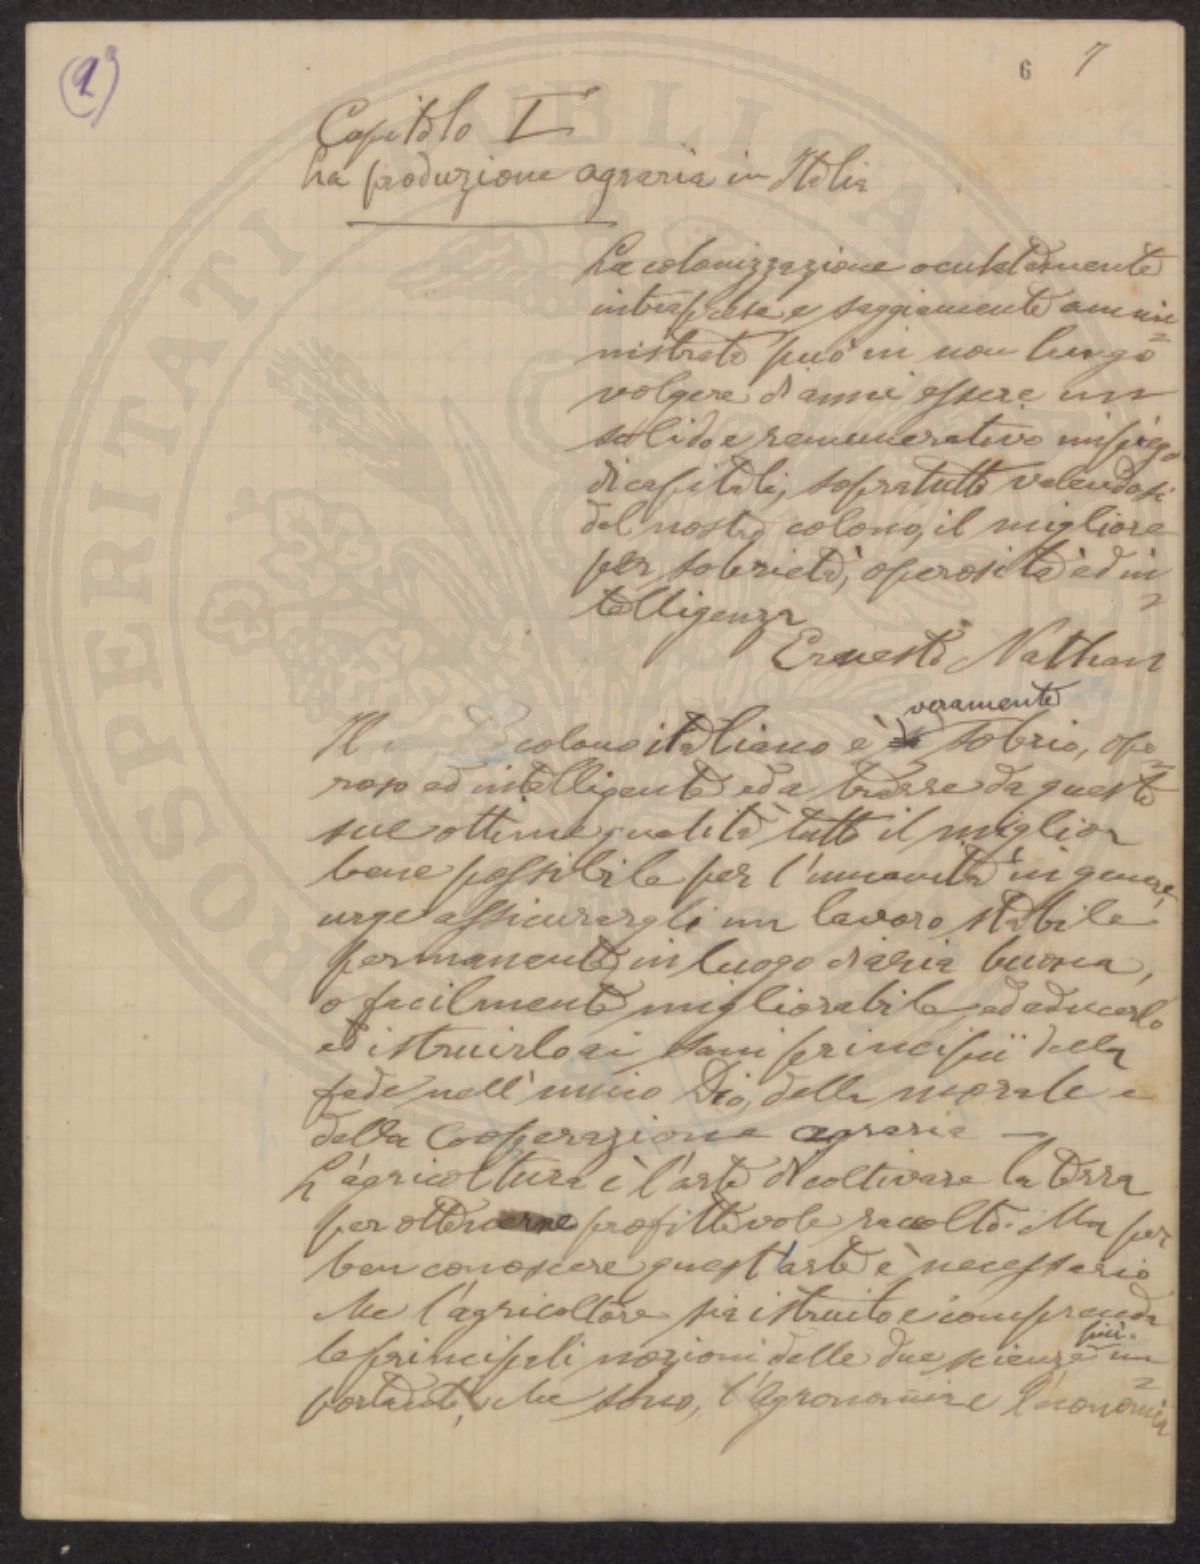 (1)
6 7
Capitolo I
La produzione agraria in Italia
La colonizzazione oculatamente
intrapresa e saggiamente ammi=
nistrata può in non lungo
volgere di anni essere un
solido e remunerativo impiego
di capitali, sopratutto valendosi
del nostro colono, il migliore
per sobrietà, operosità ed in=
telligenza
Ernesto Nathan
veramente
Il colono italiano è sobrio, ope=
roso ed intelligente ed a trarre da queste
sue ottime qualità tutto il miglior
bene possibile per l'umanità in genere,
urge assicurargli un lavoro stabile
permanente, in luogo di aria buona,
o facilmente migliorabile, ed educarlo
ed istruirlo ai sani principii della
fede nell'unico Dio, della morale e
della Cooperazione agraria —
L'agricoltura è l'arte di coltivare la terra
per ottenerne profittevole raccolto. Ma per
ben conoscere quest'arte è necessario
che l'agricoltore sia istruito e comprenda
più
le principali nozioni delle due scienze im=
portanti, che sono, l'Agronomia e l'economia
PROSPERITATI PUBLICAE